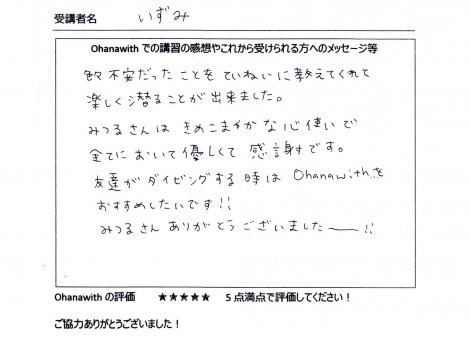 受講者名 いずみ
Ohanawith での講習の感想やこれから受けられる方へのメッセージ等
色々不安だったことをていねいに教えてくれて
楽しく潜ることが出来ました。
みつるさんは きめこまやかな心使いで
全てにおいて優しくて 感謝です。
友達がダイビングする時は Ohanawithを
おすすめしたいです!!
みつるさんありがとうございました〜!!
Ohanawith の評価 ★★★★★ 5 点満点で評価してください！
ご協力ありがとうございました！